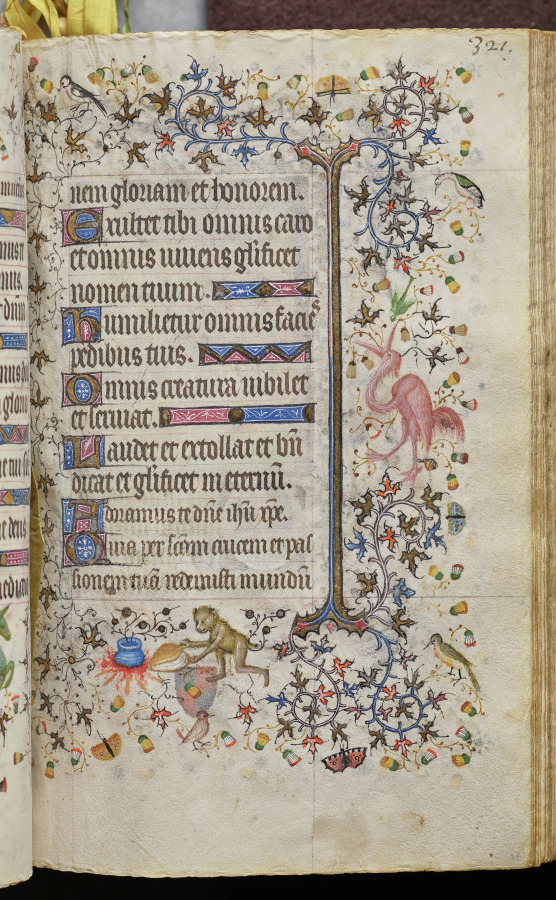 321.
nem gloriam et honorem.
Exultet tibi omnis caro
et omnis uiuens glificet
nomen tuum.
Humilietur omnis facies
pedibus tuis.
Omnis creatura iubilet
et seruiat.
Laudet et extollat et bn
dicat et glificet in eternu.
Adoramus te dne ihu xpe.
Quia per scam crucem et pas
sionem tua redemisti mundu